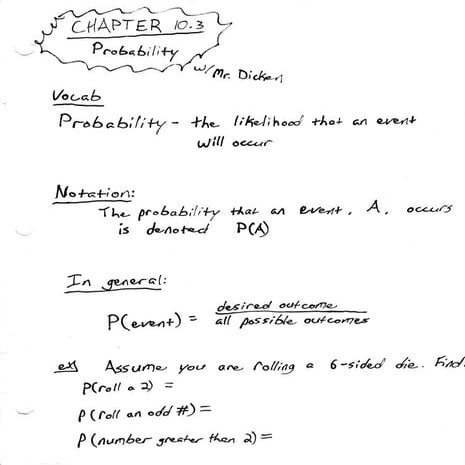 CHAPTER 10.3
Probability
w/ Mr. Dickerl
Vocab
Probability - the likelihood that an event
will occur
Notation:
The probability that an event, A, occurs
is denoted P(A)
In general:
P(event) = desired outcome
all possible outcomes
ex) Assume you are rolling a 6-sided die. Find.
P(roll a 2) =
P(roll an odd #) =
P(number greater than 2) =